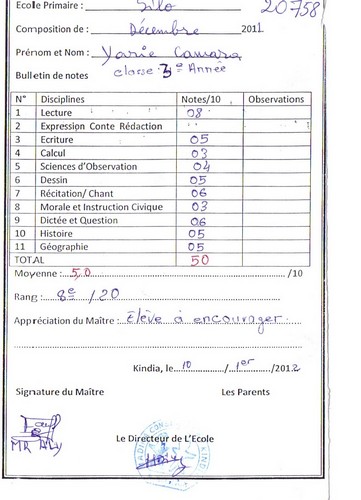 Ecole Primaire : Silo 20758
Composition de : Décembre 2011
Prénom et Nom : Yarie Camara
Bulletin de notes classe 3e Année
N° Disciplines Notes/10 Observations
1 Lecture 08
2 Expression Conte Rédaction
3 Ecriture 05
4 Calcul 03
5 Sciences d'Observation 04
6 Dessin 05
7 Récitation/ Chant 06
8 Morale et Instruction Civique 03
9 Dictée et Question 06
10 Histoire 05
11 Géographie 05
TOTAL 50
Moyenne : 5,0 /10
Rang : 8e /20
Appréciation du Maître : Elève à encourager.
Kindia, le 10 / 1er /2012
Signature du Maître Les Parents
MR ALY
Le Directeur de L'Ecole